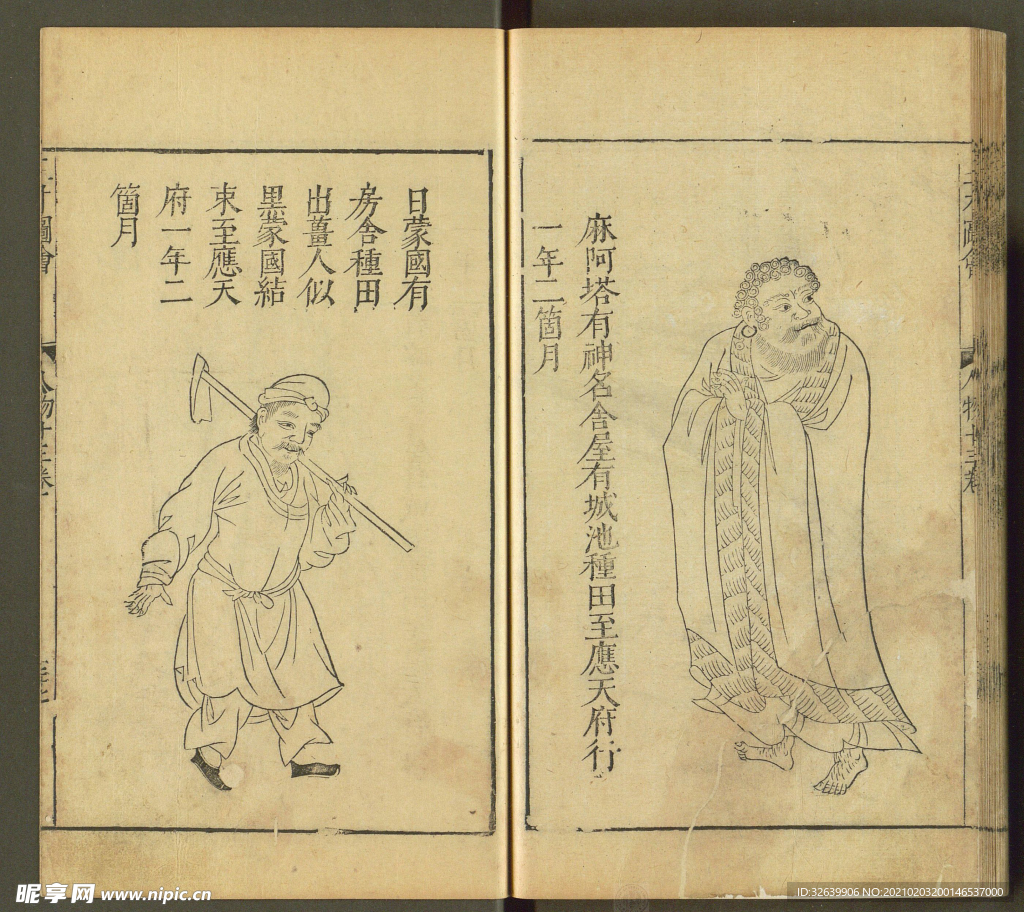 麻阿塔有神名舍屋有城池種田至應天府行
一年二箇月
日蒙國有
房舍種田
出薑人似
黑蒙國結
束至應天
府一年二
箇月
圖會
昵享网 www.nipic.cn
ID:32639906 NO:20210203200146537000